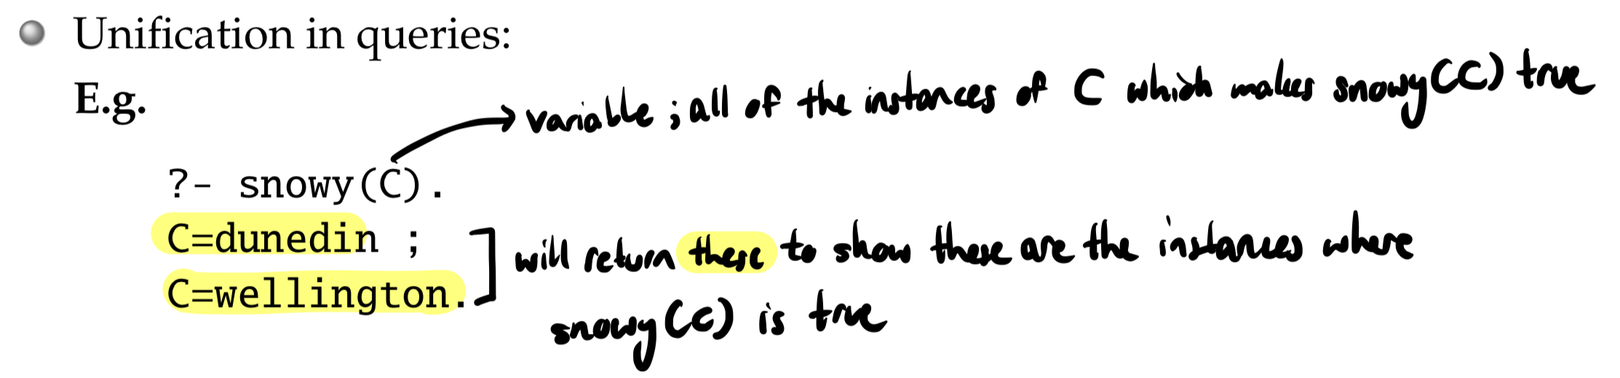 Unification in queries:
E.g.
→ variable ; all of the instances of C which makes snowy(C) true
?- snowy(C).
C=dunedin ;
C=wellington.
will return these to show these are the instances where
snowy(C) is true